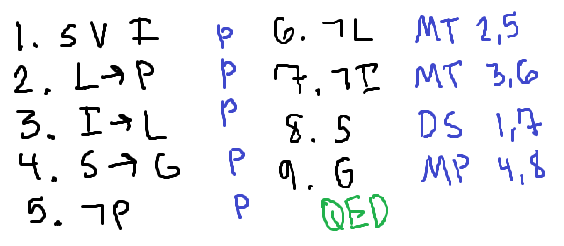 1. S V I P
2. L→P P
3. I→L P
4. S→G P
5. ¬P P
6. ¬L MT 2,5
7. ¬I MT 3,6
8. S DS 1,7
9. G MP 4,8
QED